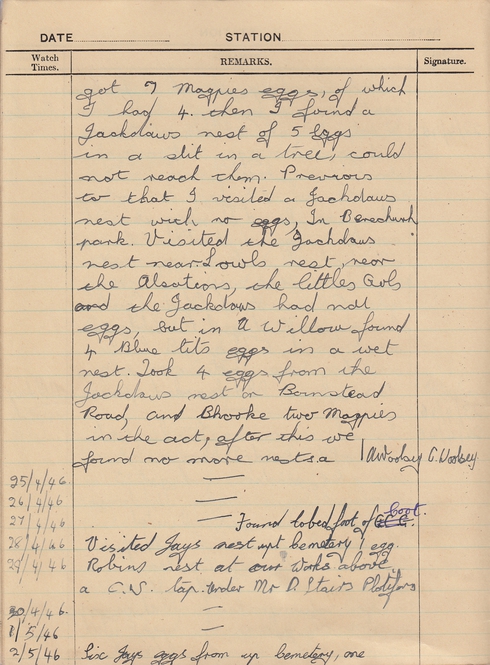 DATE STATION
Watch Times. REMARKS. Signature.
got 7 Magpies eggs, of which
I had 4. then I found a
Jackdaws nest of 5 Eggs
in a slit in a tree, could
not reach them. Previous
to that I visited a Jackdaws
nest with no eggs, In Berechurch
park. Visited the Jackdaws
nest near Lowls nest, near
the the littles Owls
and the Jackdaws had not
eggs, but in a Willow found
4 Blue tits eggs in a wet
nest. Took 4 eggs from the
Jackdaws nest on Barnstead
Road, and Bhrooke two Magpies
in the act, after this we
found no more nests. A Woolsey C. Woolsey
25/4/46 —
26/4/46 —
27/4/46 — Found lobed foot of Coot.
28/4/46 Visited Jays nest upt cemetery 1 egg.
29/4/46 Robins nest at our works above
a C.W. tap. under Mr D. Stairs
30/4/46. —
1/5/46 —
2/5/46 Six Jays eggs from up cemetery, one